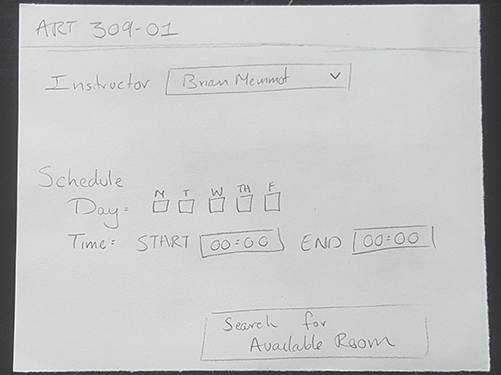 ART 309-01
Instructor Brian Memmot
Schedule
Day: M T W TH F
Time: START 00:00 END 00:00
Search for
Available Room